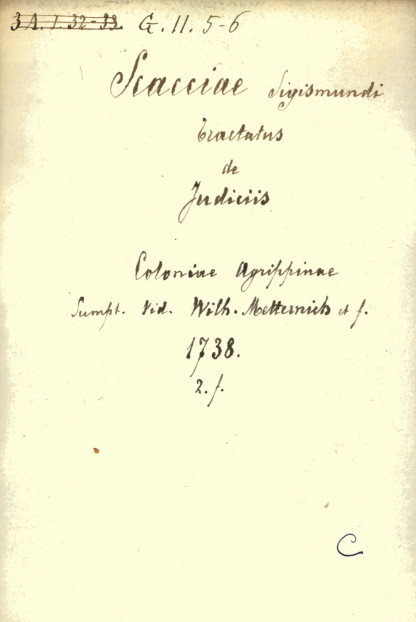 3 A. 1. 32-33. G. 11. 5-6
Scacciae Sigismundi
Tractatus
de
Judiciis
Coloniae Agrippinae
Sumpt. Vid. Wilh. Metternich et f.
1738.
2. f.
C